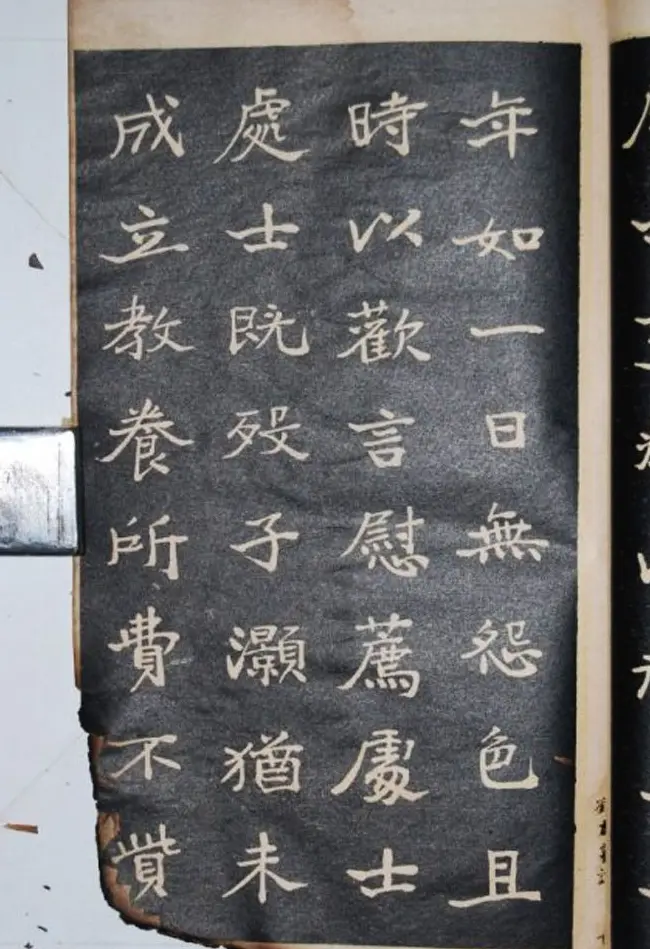 年如一日無怨色且
時以歡言慰薦處士
處士既歿子灝猶未
成立教養所費不貲